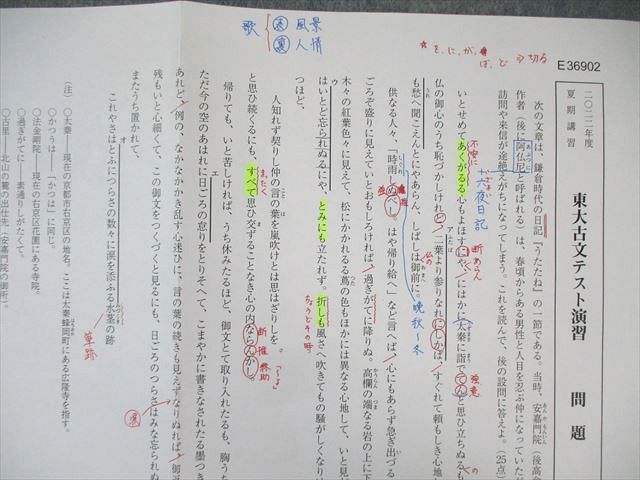 E36902
二〇二二年度
夏期講習
東大古文テスト演習　問題
次の文章は、鎌倉時代の日記『うたたね』の一節である。当時、安嘉門院（後高倉
作者（後に阿仏尼と呼ばれる）は、春頃からある男性と人目を忍ぶ仲になっていたが
訪問や来信が途絶えがちになってしまう。これを読んで、後の設問に答えよ。（25点）
十六夜日記
いとせめてあくがるる心もよほすにや、にはかに太秦に詣でてんと思ひ立ちぬるも
断 あらん
強意
仏の御心のうち恥づかしけれど、二葉より参りなれにしかば、すぐれて頼もしき心地
も愁へ聞こえんとにやあらん、しばしは御前に。
仏の
晩秋〜冬
供なる人々、「時雨ぬべし。はや帰り給へ」など言へば、心にもあらず急ぎ出づる
ごろぞ盛りに見えていとおもしろければ、過ぎがてに降りぬ。高欄の端なる岩の上に下
木々の紅葉色々に見えて、松にかかれる蔦の色もほかには異なる心地して、いと見
はいとど忘られぬるにや、とみにも立たれず。折しも風さへ吹きてもの騒がしくなりけ
ちょうどその時
つほど、
人知れず契りし仲の言の葉を嵐吹けとは思はざりしを
と思ひ続くるにも、すべて思ひ交ずることなき心の内ならんかし。
まったく
断 推 終助
帰りても、いと苦しければ、うち休みたるほど、御文とて取り入れたるも、胸うち
ただ今の空のあはれに日ごろの怠りをとりそへて、こまやかに書きなされたる墨つき
あれど、例の、なかなかかき乱す心迷ひに、言の葉の続きも見えずなりぬれば、御返
残もいと心細くて、この御文をつくづくと見るにも、日ごろのつらさはみな忘られぬ
またうち置かれて、
これやさはとふにつらさの数々に涙を添ふる水茎の跡
筆跡
裏
歌
表 風景
裏 人情
を、に、が、
ば、ど
切る
（注）○太秦――現在の京都市右京区の地名。ここは太秦蜂岡町にある広隆寺を指す。
○かつうは――「かつは」に同じ。
○法金剛院――現在の右京区花園にある寺院。
○過ぎがてに――素通りしがたくて。
○古里――北山の麓の出仕先（安嘉門院の御所）。